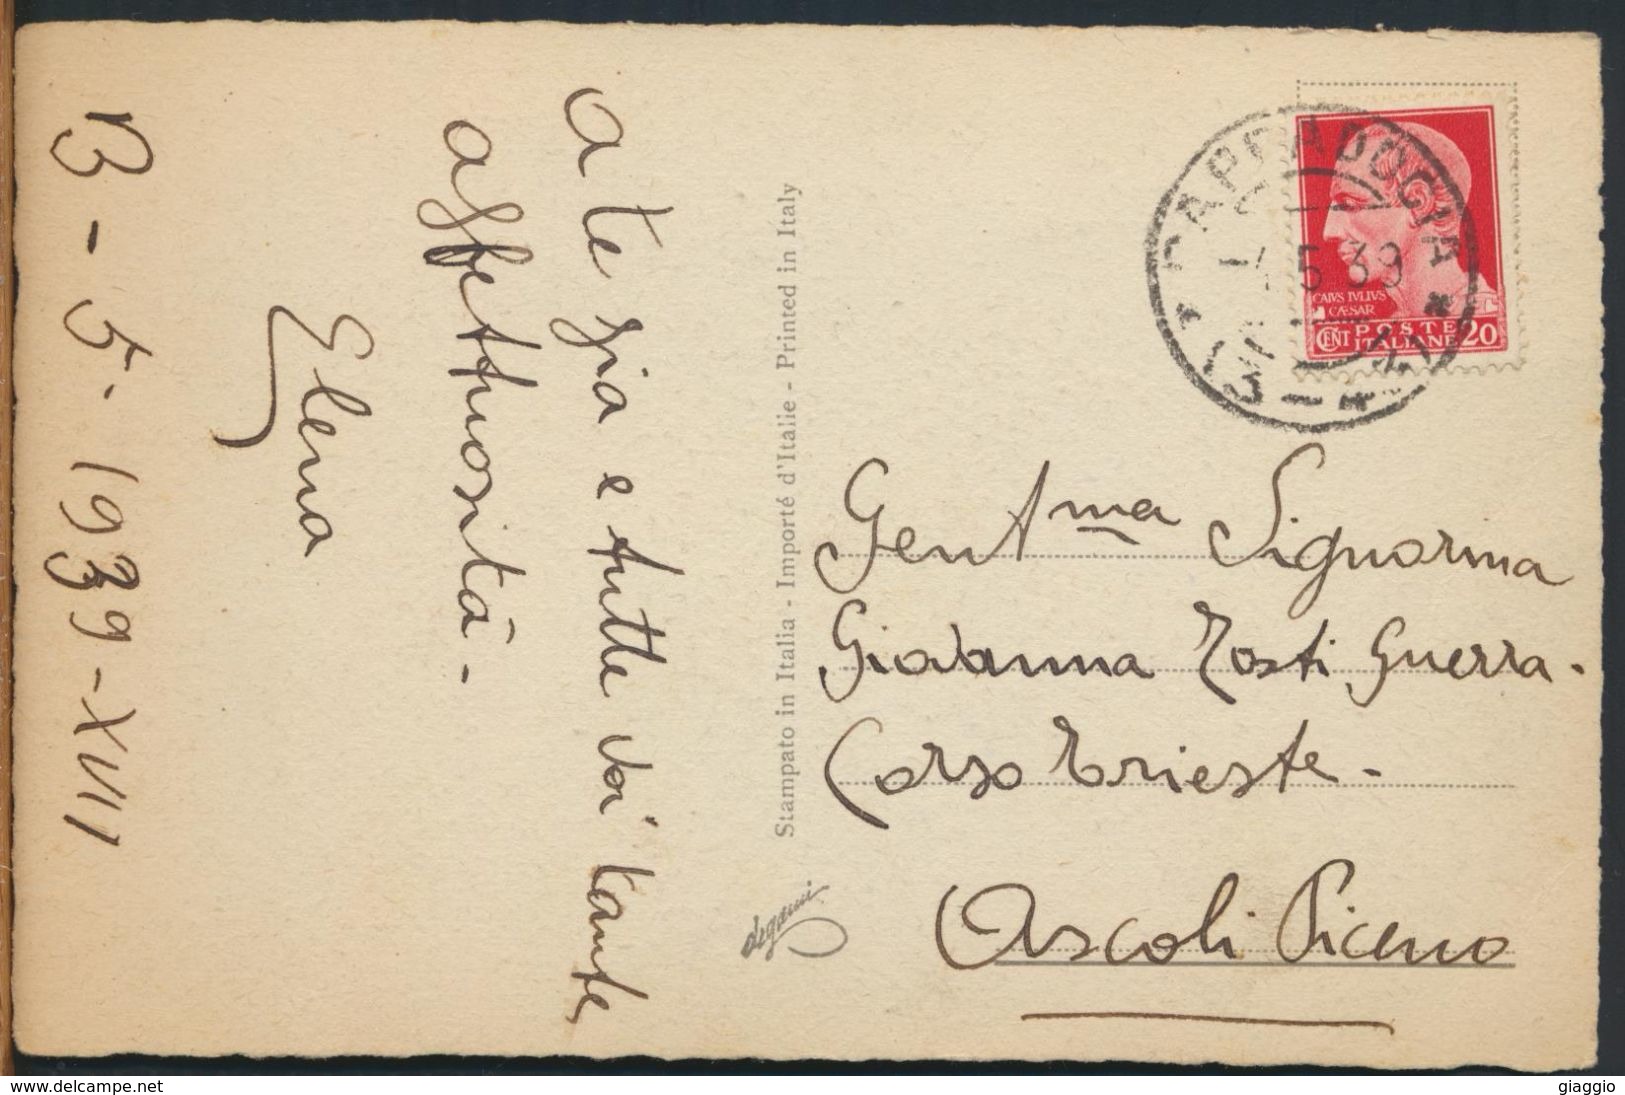 a te già e tutte voi tante
affettuosità -
Elena
13 - 5 - 1939 - XVII
Stampato in Italia - Importé d'Italie - Printed in Italy
degami
CAPPADOCIA
5 39
CAIVS IVLIVS
CÆSAR
CENT POSTE 20
ITALIANE
Gent ma Signorina
Giovanna Tosti Guerra -
Corso Trieste -
Ascoli Piceno
www.delcampe.net
giaggio